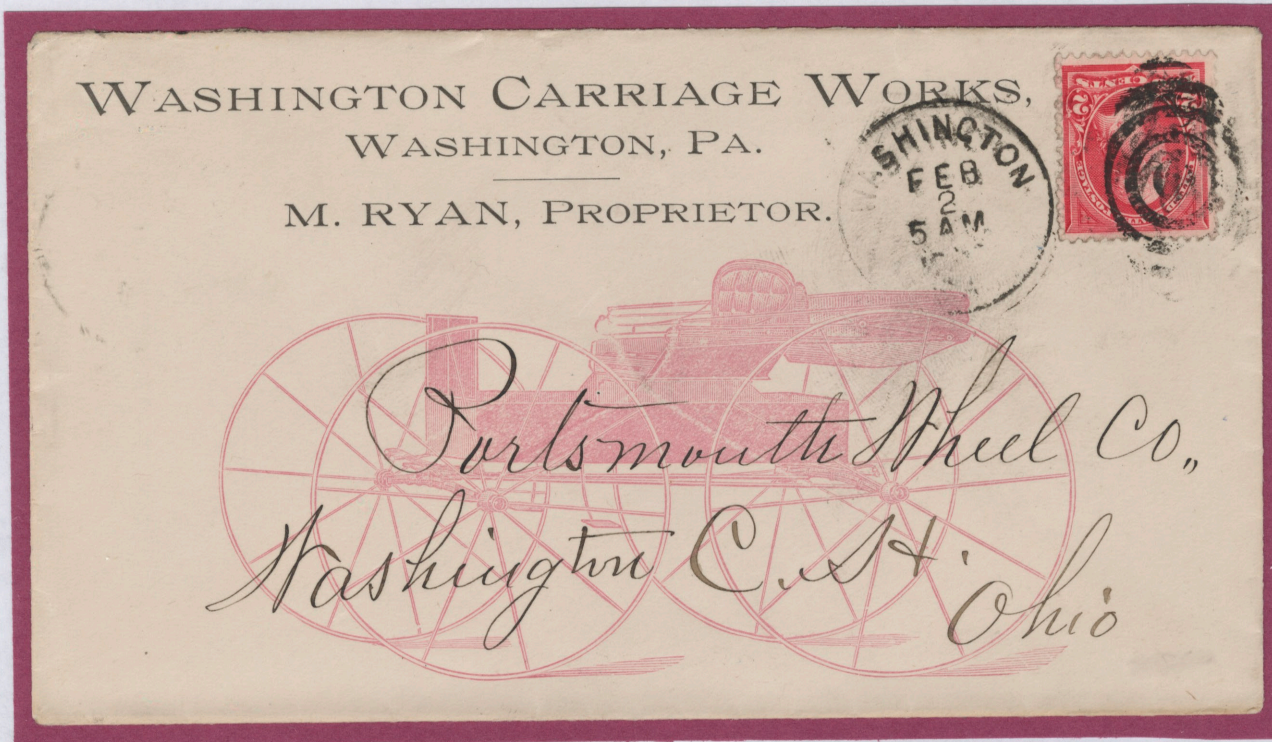 WASHINGTON CARRIAGE WORKS,
WASHINGTON, PA.
M. RYAN, PROPRIETOR.
WASHINGTON
FEB
2
5 AM
2 2
Portsmouth Wheel Co.,
Washington C. H.
Ohio